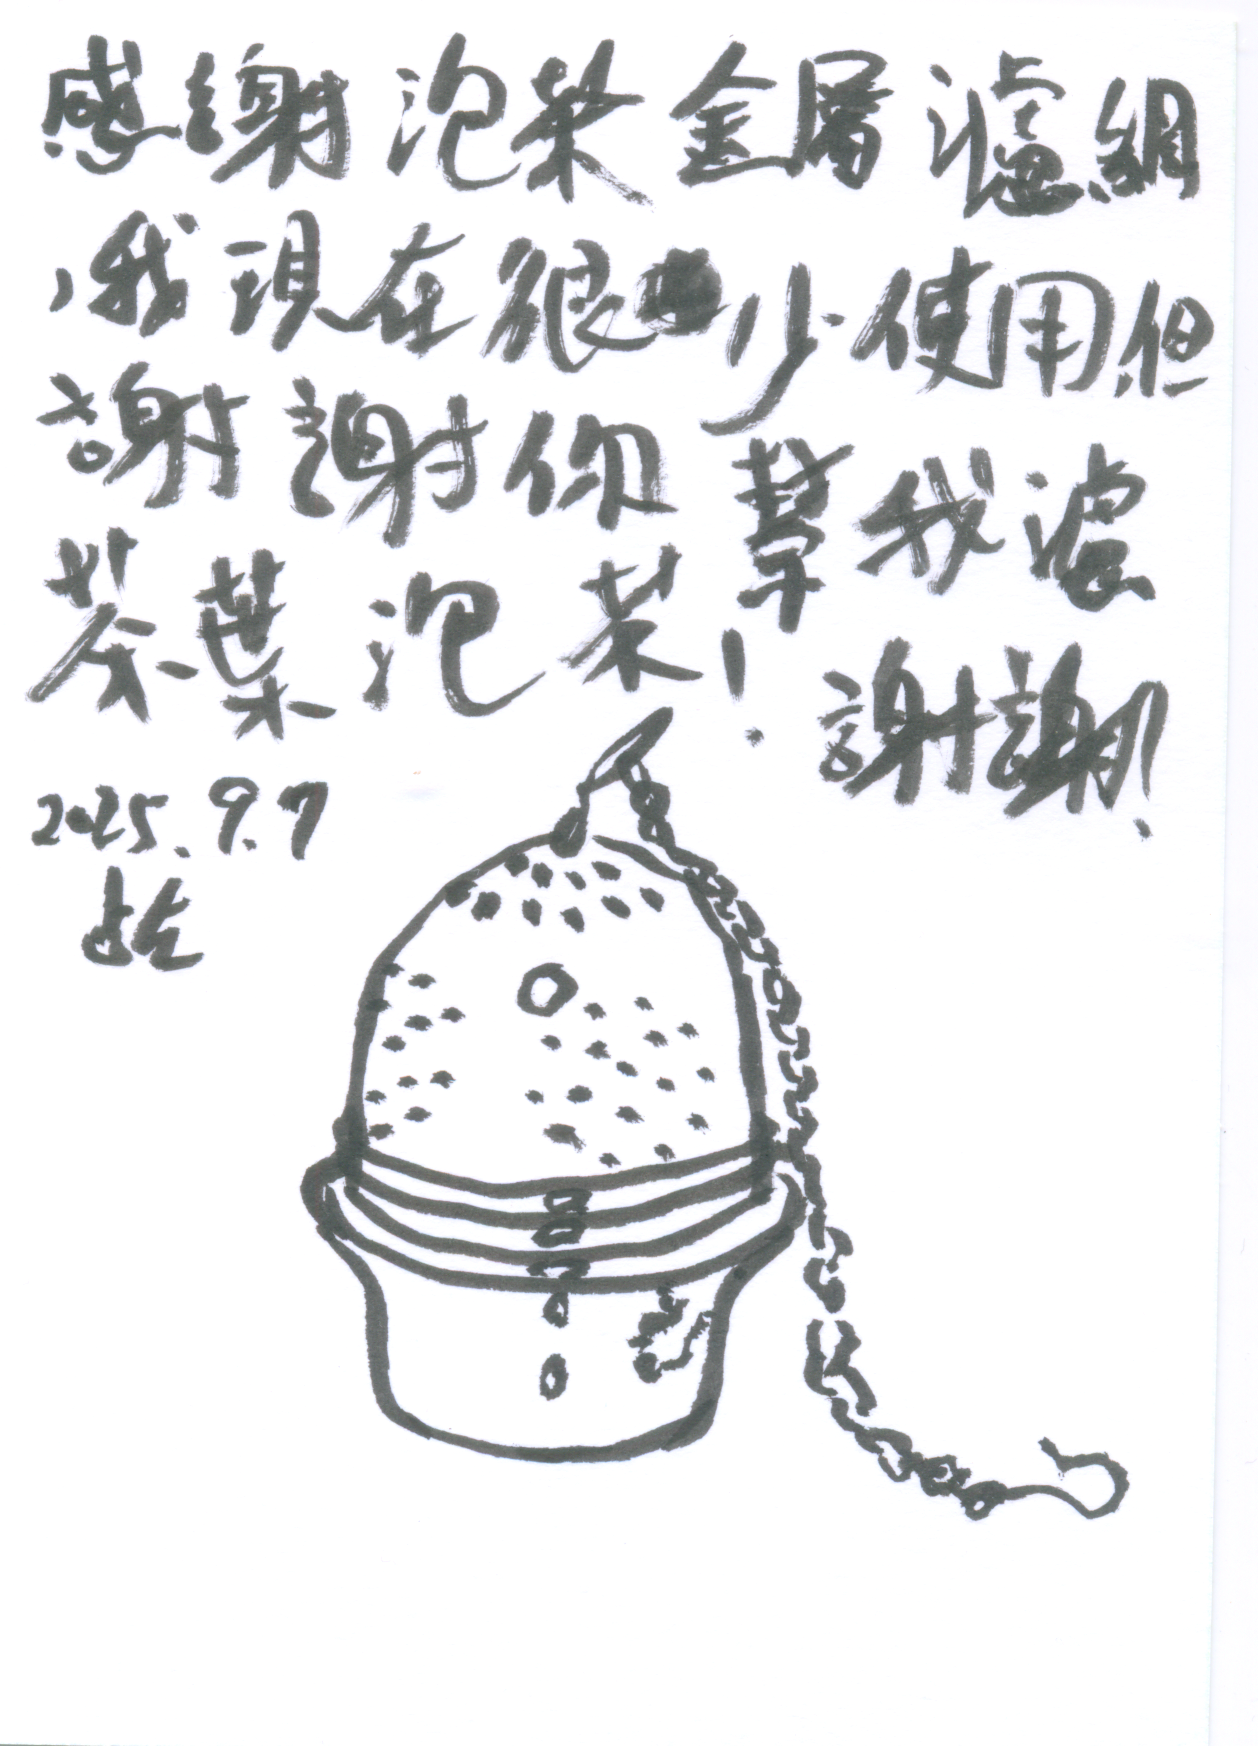 感謝泡茶金屬濾網
，我現在很少使用但
謝謝你幫我濾
茶葉泡茶！謝謝！
2025.9.7